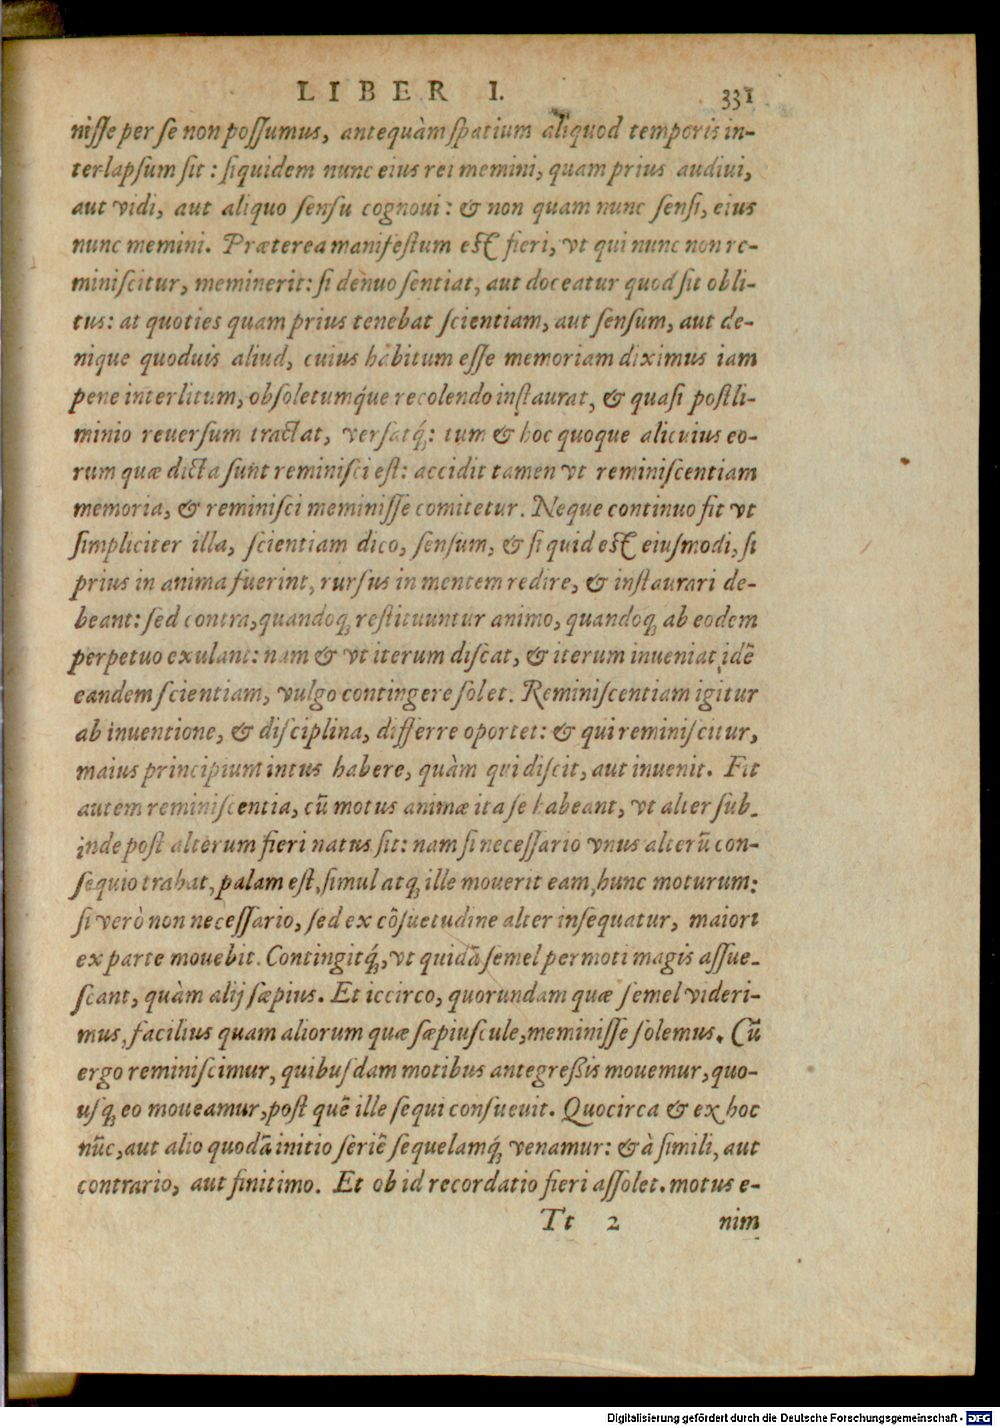 LIBER I. 331
nisse per se non possumus, antequàm spatium aliquod temporis in-
terlapsum sit : siquidem nunc eius rei memini, quam prius audiui,
aut vidi, aut aliquo sensu cognoui : & non quam nunc sensi, eius
nunc memini. Præterea manifestum est fieri, vt qui nunc non re-
miniscitur, meminerit: si denuo sentiat, aut doceatur quod sit obli-
tus: at quoties quam prius tenebat scientiam, aut sensum, aut de-
nique quoduis aliud, cuius habitum esse memoriam diximus iam
pene interlitum, obsoletumq́ue recolendo instaurat, & quasi postli-
minio reuersum tractat, versatq́;: tum & hoc quoque alicuius eo-
rum quæ dicta sunt reminisci est: accidit tamen vt reminiscentiam
memoria, & reminisci meminisse comitetur. Neque continuo fit vt
simpliciter illa, scientiam dico, sensum, & si quid est eiusmodi, si
prius in anima fuerint, rursus in mentem redire, & instaurari de-
beant: sed contra, quandoq; restituuntur animo, quandoq; ab eodem
perpetuo exulant: nam & vt iterum discat, & iterum inueniat idē
eandem scientiam, vulgo contingere solet. Reminiscentiam igitur
ab inuentione, & disciplina, differre oportet: & qui reminiscitur,
maius principium intus habere, quàm qui discit, aut inuenit. Fit
autem reminiscentia, cū motus animæ ita se habeant, vt alter sub-
inde post alterum fieri natus sit: nam si necessario vnus alterū con-
sequio trahat, palam est, simul atq; ille mouerit eam, hunc moturum:
si verò non necessario, sed ex cōsuetudine alter insequatur, maiori
ex parte mouebit. Contingitq́;, vt quidā semel permoti magis assue-
scant, quàm alij sæpius. Et iccirco, quorundam quæ semel videri-
mus, facilius quam aliorum quæ sæpiuscule, meminisse solemus. Cū
ergo reminiscimur, quibusdam motibus antegreßis mouemur, quo-
usq; eo moueamur, post quē ille sequi consueuit. Quocirca & ex hoc
nūc, aut alio quodā initio seriē sequelamq́; venamur: & à simili, aut
contrario, aut finitimo. Et ob id recordatio fieri assolet. motus e-
Tt 2 nim
Digitalisierung gefördert durch die Deutsche Forschungsgemeinschaft - DFG